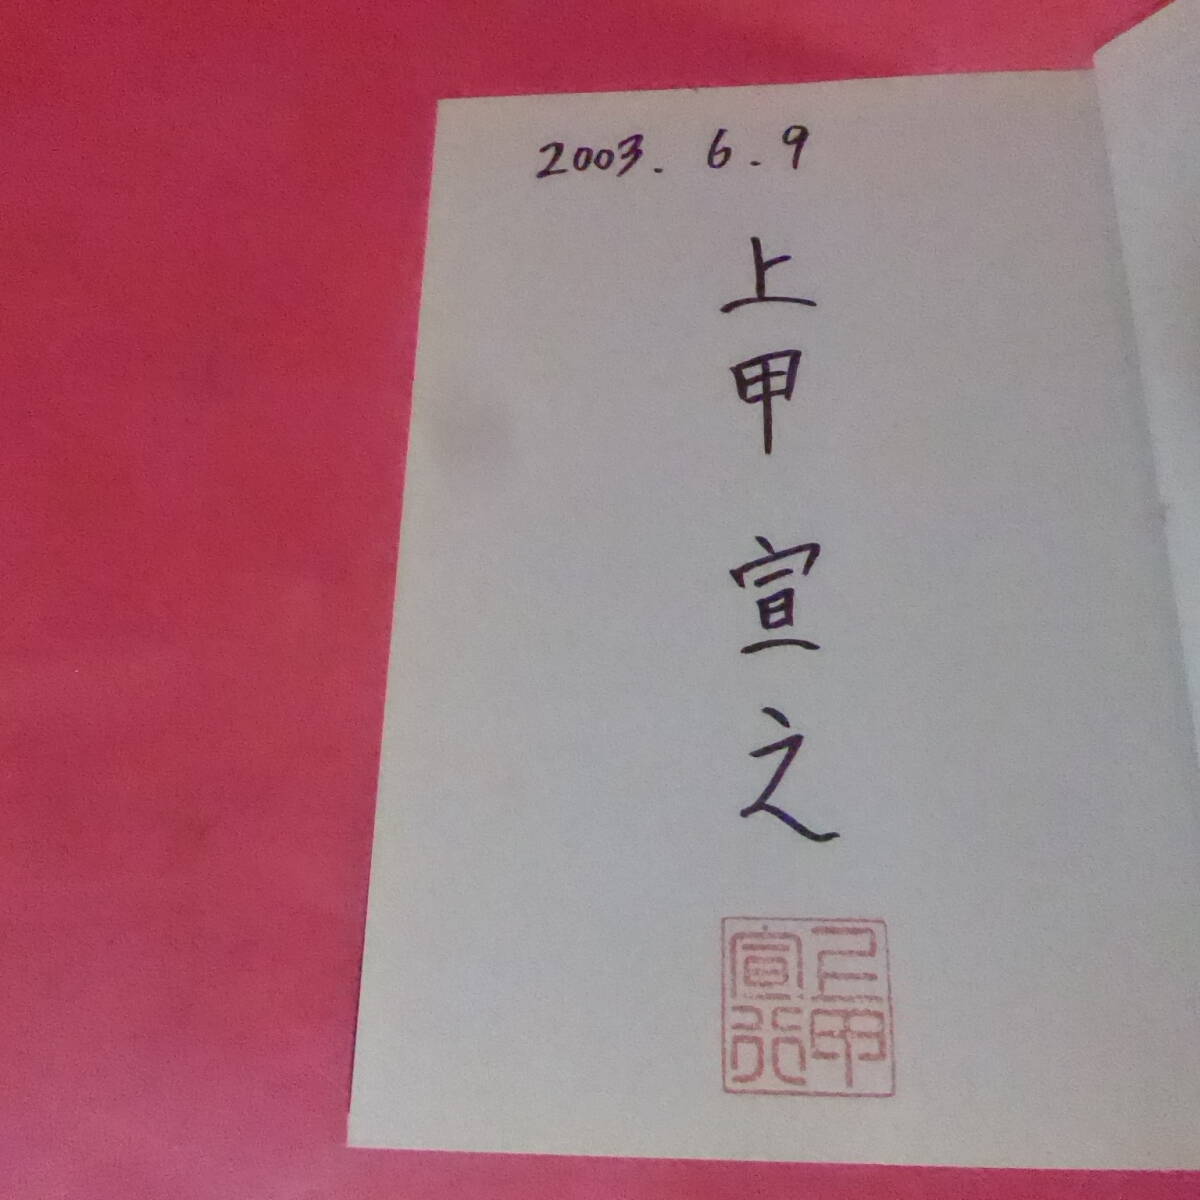 2003. 6. 9
上甲 宣之
上甲
宣行